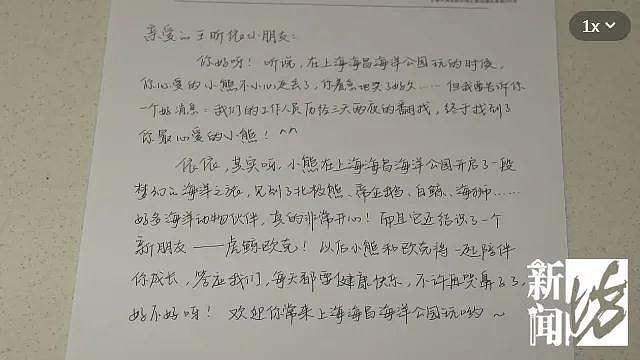 亲爱的王昕依小朋友:
你好呀!听说,在上海海昌海洋公园玩的时候,
你心爱的小熊不小心丢去了,你着急地哭了好久……但我要告诉你
一个好消息:我们的工作人员历经三天两夜的翻找,终于找到了
你最心爱的小熊!^^
依依,其实呀,小熊在上海海昌海洋公园开启了一段
梦幻的海洋之旅,见到了北极熊、帝企鹅、白鲸、海狮……
好多海洋动物伙伴,真的非常开心!而且它还结识了一个
新朋友——虎鲸欧克!以后小熊和欧克将一起陪伴
你成长,答应我们,每天都要健康快乐,不许再哭鼻子了,
好不好呀!欢迎你常来上海海昌海洋公园玩哟~
1x
新闻坊